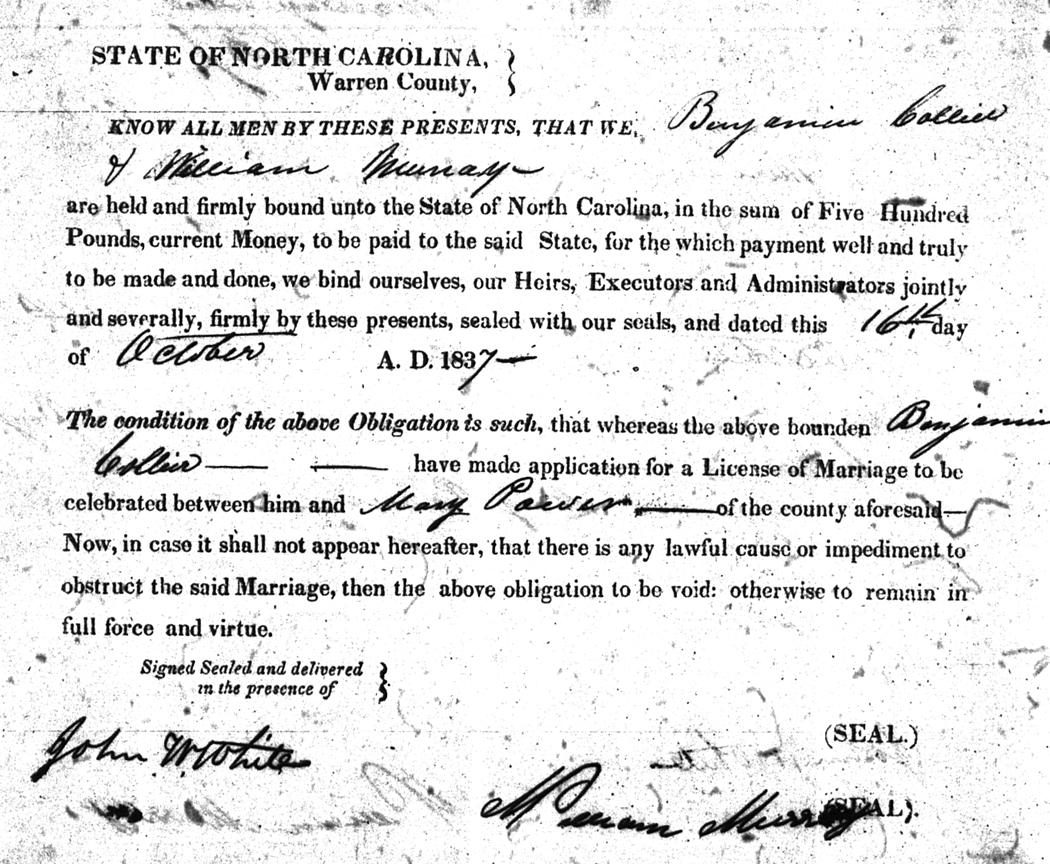 STATE OF NORTH CAROLINA,
Warren County,
KNOW ALL MEN BY THESE PRESENTS, THAT WE, Benjamin Collier
& William Murray
are held and firmly bound unto the State of North Carolina, in the sum of Five Hundred
Pounds, current Money, to be paid to the said State, for the which payment well and truly
to be made and done, we bind ourselves, our Heirs, Executors and Administrators jointly
and severally, firmly by these presents, sealed with our seals, and dated this 16th day
of October A. D. 1837
The condition of the above Obligation is such, that whereas the above bounden Benjamin
Collier have made application for a License of Marriage to be
celebrated between him and Mary of the county aforesaid
Now, in case it shall not appear hereafter, that there is any lawful cause or impediment to
obstruct the said Marriage, then the above obligation to be void: otherwise to remain in
full force and virtue.
Signed Sealed and delivered
in the presence of
(SEAL.)
John W. White
William Murray (SEAL).